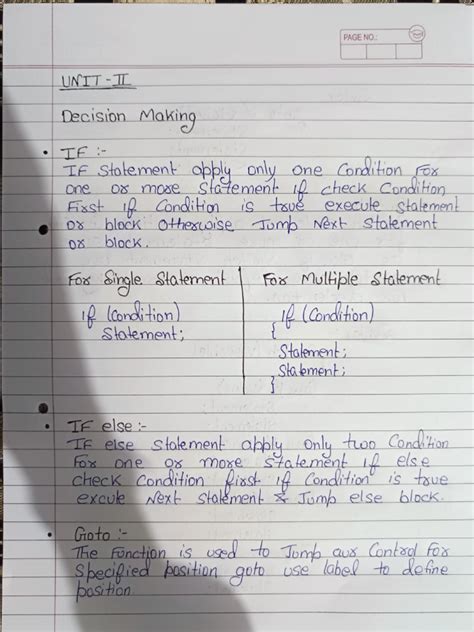 PAGE NO.:
UNIT-II
Decision Making
• IF :-
IF Statement apply only one Condition For
one or more Statement if check Condition
First if Condition is true execute Statement
or block Otherwise Jump Next Statement
or block.
For Single Statement
if (Condition)
Statement;
For Multiple Statement
if (Condition)
{
Statement;
Statement;
}
• IF else :-
IF else Statement apply only two Condition
For one or more Statement if else
check Condition first if Condition is true
excute Next Statement & Jump else block.
• Goto :-
The Function is used to Jump our Control For
Specified position goto use label to define
position